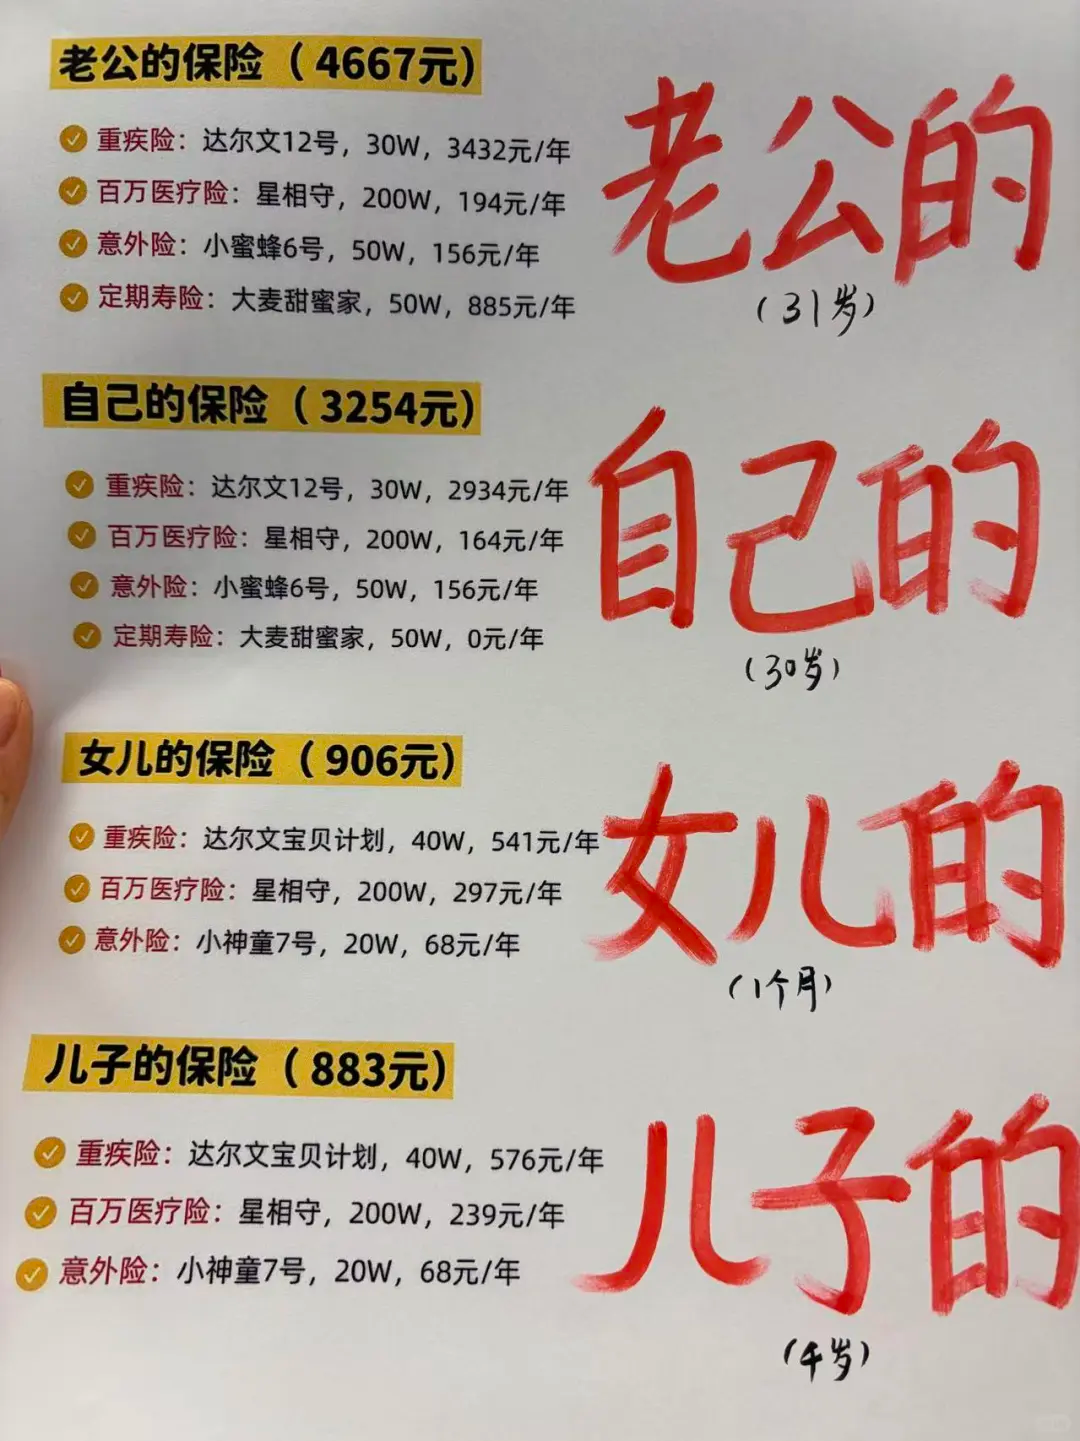 老公的保险（4667元）
重疾险：达尔文12号，30W，3432元/年
百万医疗险：星相守，200W，194元/年
意外险：小蜜蜂6号，50W，156元/年
定期寿险：大麦甜蜜家，50W，885元/年
老公的
（31岁）
自己的保险（3254元）
重疾险：达尔文12号，30W，2934元/年
百万医疗险：星相守，200W，164元/年
意外险：小蜜蜂6号，50W，156元/年
定期寿险：大麦甜蜜家，50W，0元/年
自己的
（30岁）
女儿的保险（906元）
重疾险：达尔文宝贝计划，40W，541元/年
百万医疗险：星相守，200W，297元/年
意外险：小神童7号，20W，68元/年
女儿的
（1个月）
儿子的保险（883元）
重疾险：达尔文宝贝计划，40W，576元/年
百万医疗险：星相守，200W，239元/年
意外险：小神童7号，20W，68元/年
儿子的
（4岁）